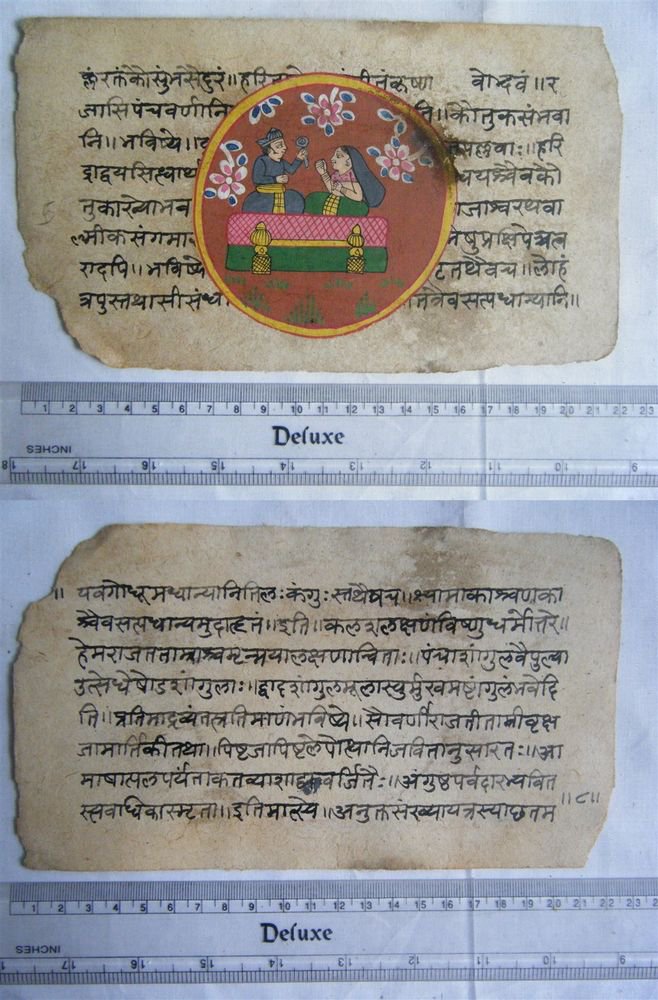 क्लं रक्तं कौसुंभसैंदुरं॥हरि कृष्ण वोद्भवं॥र
जांसिपंचवर्णानि नि॥कौतुकसंभवा
नि॥भविष्ये॥ पल्लवाः॥हरि
द्राद्वयसिद्धार्थ चयश्चैवको
तुकाख्याभव गजाश्वरथवा
ल्मीकसंगमा क्षिपेच्चत्व
रादपि॥भविष्ये तथैवच॥लोहं
त्रपुस्तथासीसं सप्तधान्यानि॥
1 2 3 4 5 6 7 8 9 10 11 12 13 14 15 16 17 18 19 20 21 22 23
Deluxe
INCHES
18 17 16 15 14 13 12 11 10 9
॥यवगोधूमधान्यानितिलःकंगुःस्तथैवच॥श्यामाकाश्चणका
श्चैवसप्तधान्यमुदाहृतं॥इति॥कलशलक्षणंविष्णुधर्मोत्तरे॥
हेमराजतताम्राश्चमृन्मयालक्षणान्विताः॥पंचाशांगुलवैपुल्या
उत्सेधेषोडशांगुलाः॥द्वादशांगुलमूलास्युर्मुखमष्टांगुलंभवेदि
ति॥प्रतिमाद्रव्यंतत्प्रतिमाणंभविष्ये॥सौवर्णीराजतीताम्रीवृक्ष
जामार्तिकीतथा॥पिष्टजापिष्टलेपोत्थानिजवित्तानुसारतः॥आ
माषात्पलपर्यंताकर्तव्याशाठ्यवर्जितैः॥अंगुष्ठपर्वदारभ्यवित
स्त्यवाधिकास्मृता॥इतिमात्स्ये॥अनुक्तसंख्यायत्रस्याछतम
॥८॥
1 2 3 4 5 6 7 8 9 10 11 12 13 14 15 16 17 18 19 20 21 22 23
Deluxe
INCHES
17 16 15 14 13 12 11 10 9